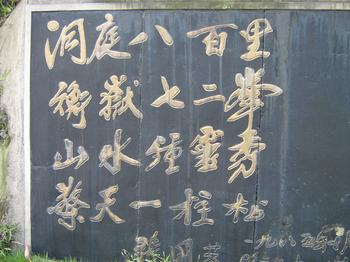 洞庭八百里
衡嶽七二峯
山水種靈秀
擎天一柱松
一九八五年